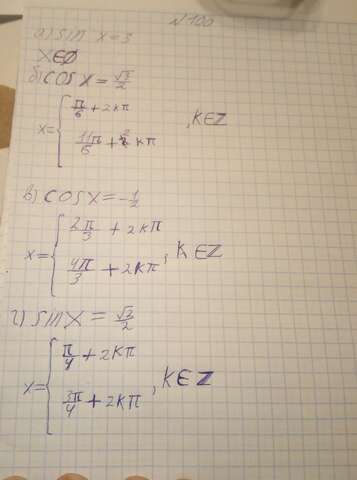 №100
а) sin x = 3
x∈∅
б) cos x = √3/2
x = { π/6 + 2kπ
11π/6 + 2kπ , k∈Z
в) cos x = -1/2
x = { 2π/3 + 2kπ
4π/3 + 2kπ , k∈Z
г) sin x = √2/2
x = { π/4 + 2kπ
3π/4 + 2kπ , k∈Z